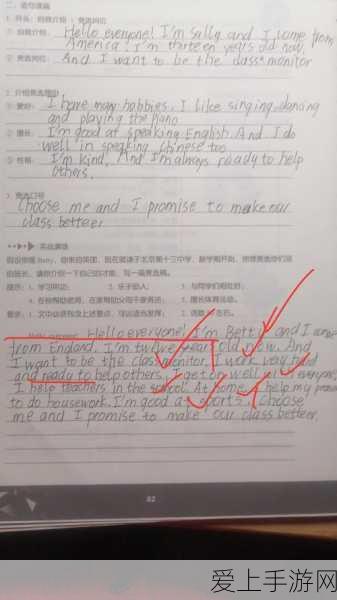 二、造句谋篇
1. 开头：自我介绍 + 竞选岗位
① 自我介绍： Hello everyone! I'm Sally and I come from
America! I'm thirteen years old now.
② 竞选岗位： And I want to be the class monitor
2. 介绍竞选理由
① 爱好： I have many habbies. I like singing, dancing
and playing the piano
② 擅长： I'm good at speaking English. And I do
well in speaking Chinese too.
③ 性格： I'm kind. And I'm always ready to help
others.
3. 竞选口号
Choose me and I promise to make our
class betteer.
实战演练
假设你是 Betty，你来自英国，现在就读于北京第十三中学。新学期开始，你想竞选你们班
的班长。请你介绍一下自己的才能，写一篇竞选稿。
提示：1. 学习努力； 2. 乐于助人； 3. 与同学们相处好；
4. 在校帮助老师，在家帮助父母干家务活； 5. 擅长体育运动。
要求：1. 文中必须包含上述要点，可以适当发挥； 2. 词数 左右。
Hello everyone! I'm Betty and I come
from England. I'm twelve year old now. And
I want to be the class monitor. I work very hard
and ready to help others. I get on well with everyone.
I help teachers in the school. At home, I help my parents
to do housework. I'm good at sports. Choose
me and I promise to make our class betteer.
82
爱上手游网